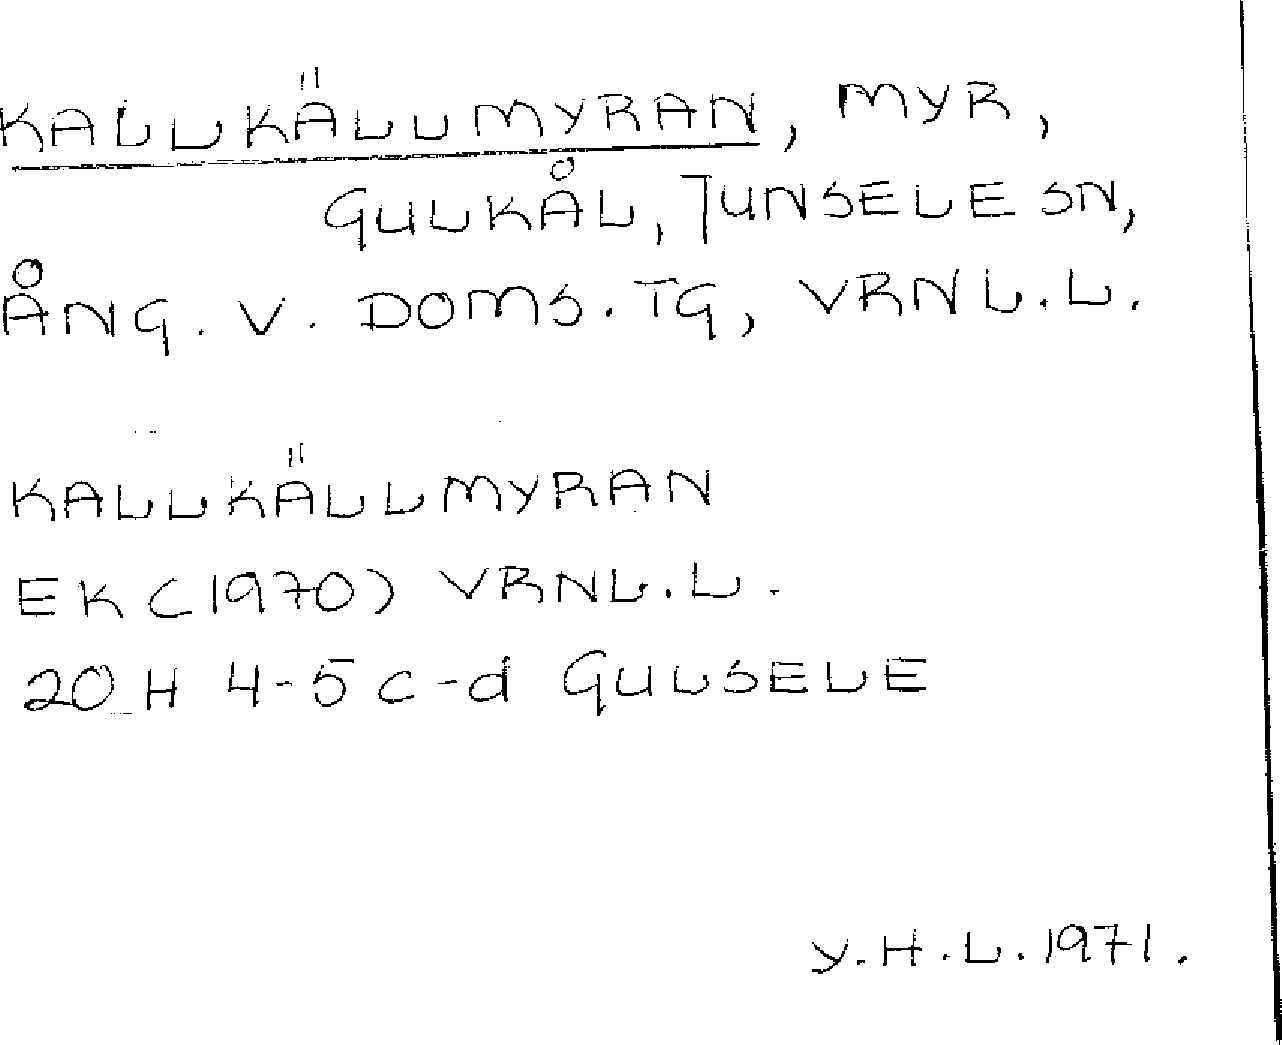 KALLKÄLLMYRAN, MYR,
GULKÅL, JUNSELE SN,
ÅNG. V. DOMS. TG, VRNL.L.
KALLKÄLLMYRAN
EK (1970) VRNL.L.
20 H 4-5 c-d GULSELE
Y.H.L. 1971.